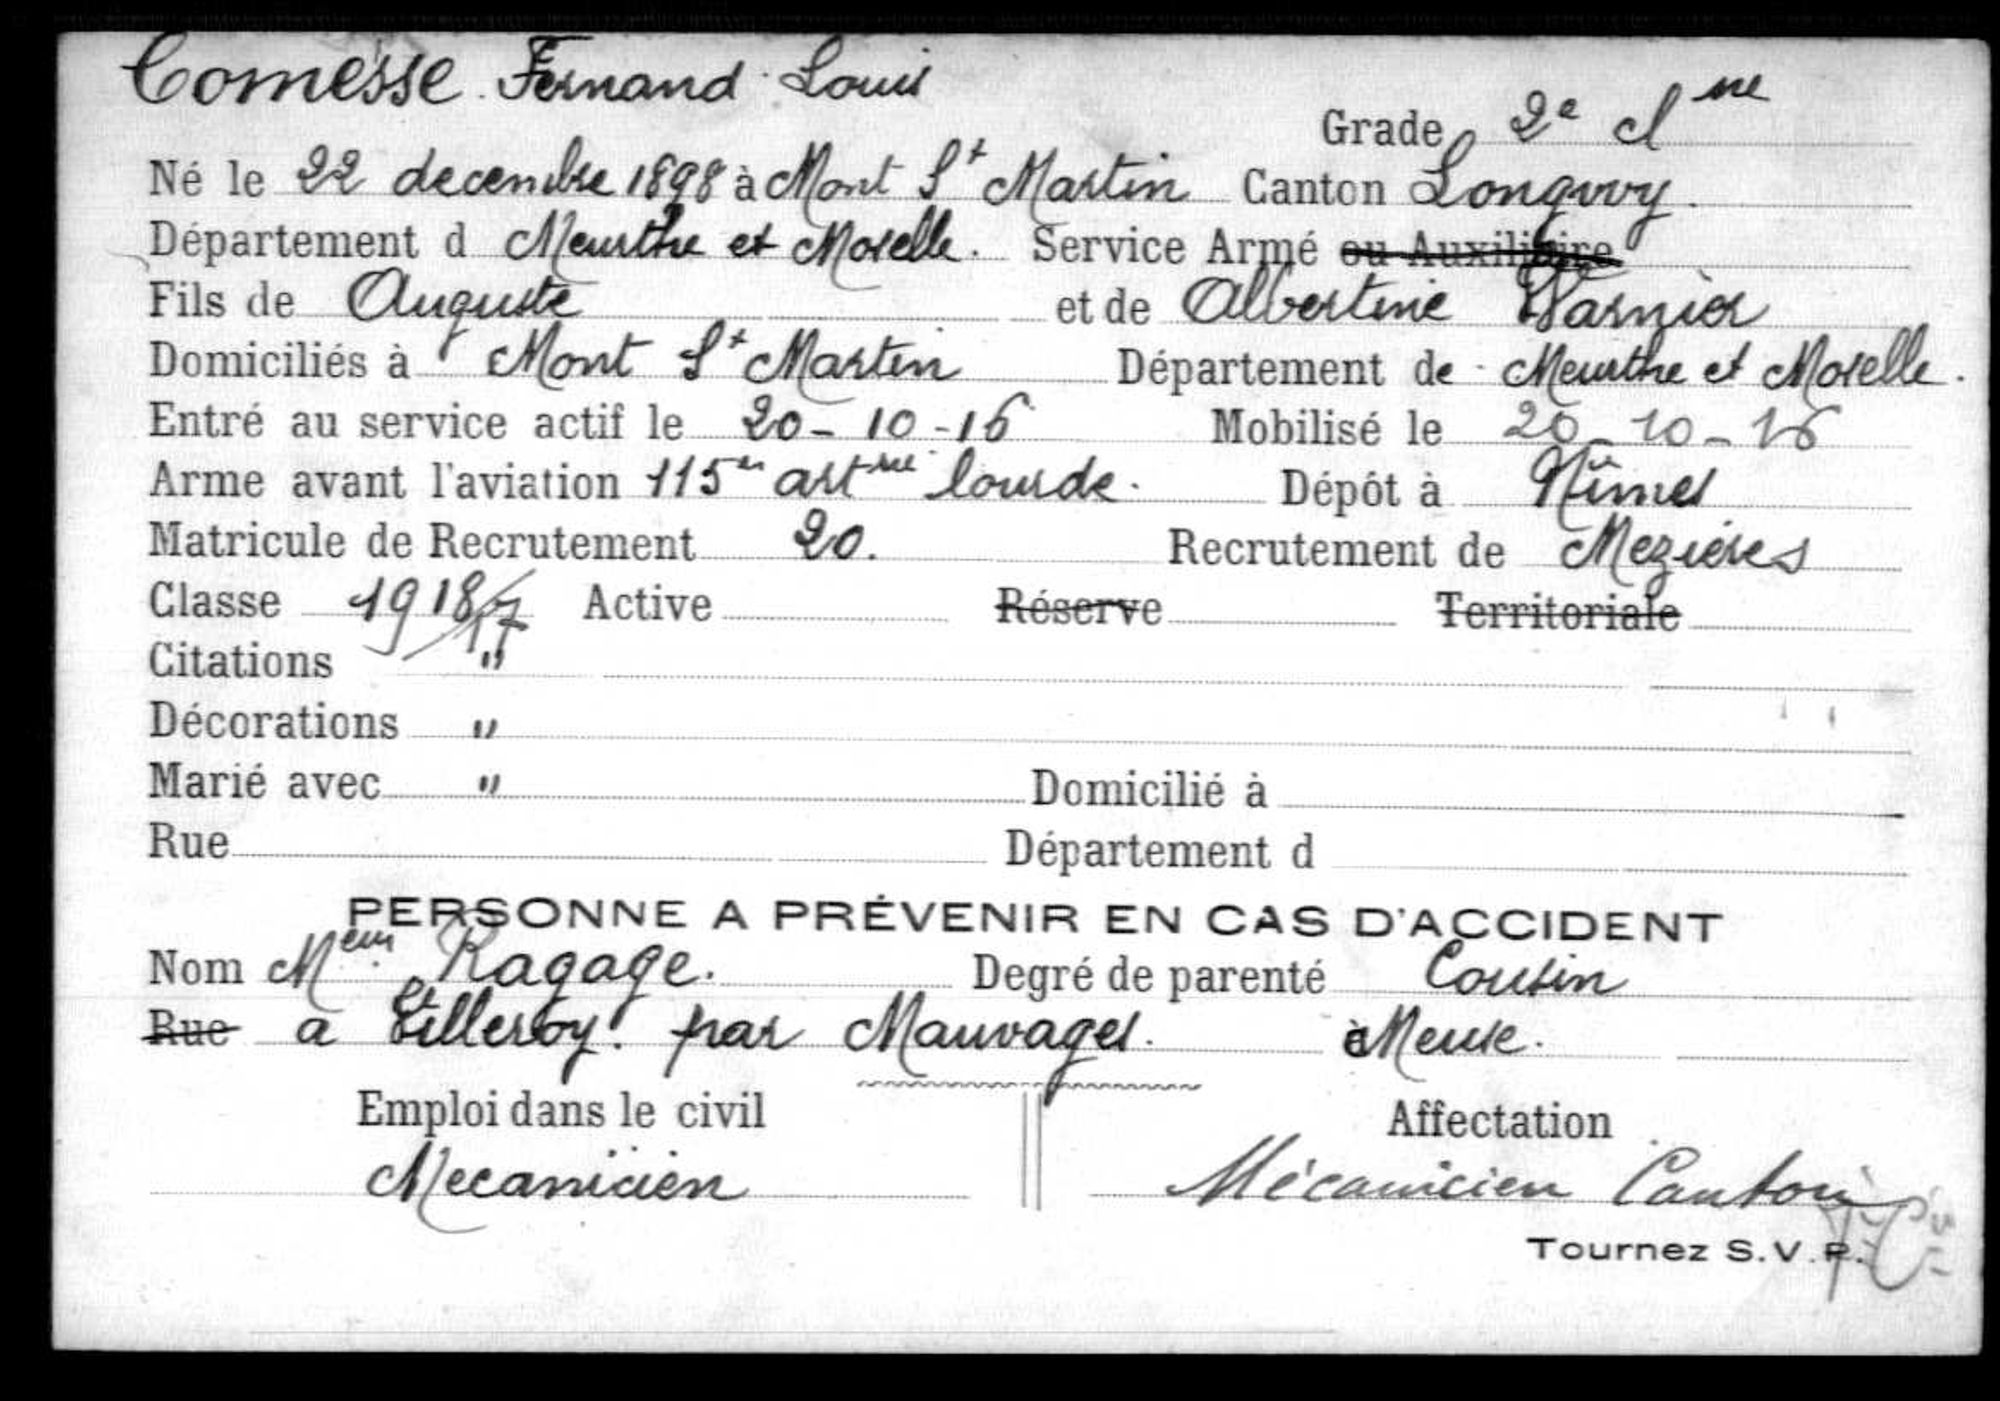 Comesse Fernand Louis
Grade 2e cl
Né le 22 decembre 1898 à Mont St Martin Canton Longwy
Département d Meurthe et Moselle. Service Armé ou Auxiliaire
Fils de Auguste et de Albertine Warnier
Domiciliés à Mont St Martin Département de Meurthe et Moselle.
Entré au service actif le 20-10-16 Mobilisé le 20-10-16
Arme avant l'aviation 115e lourde. Dépôt à Nîmes
Matricule de Recrutement 20. Recrutement de Mezières
Classe 1918/17 Active Réserve Territoriale
Citations "
Décorations "
Marié avec " Domicilié à
Rue Département d
PERSONNE A PRÉVENIR EN CAS D'ACCIDENT
Nom Ragage. Degré de parenté Cousin
Rue a par Mauvages. à Meuse.
Emploi dans le civil Affectation
Mecanicien Mécanicien
Tournez S.V.P.